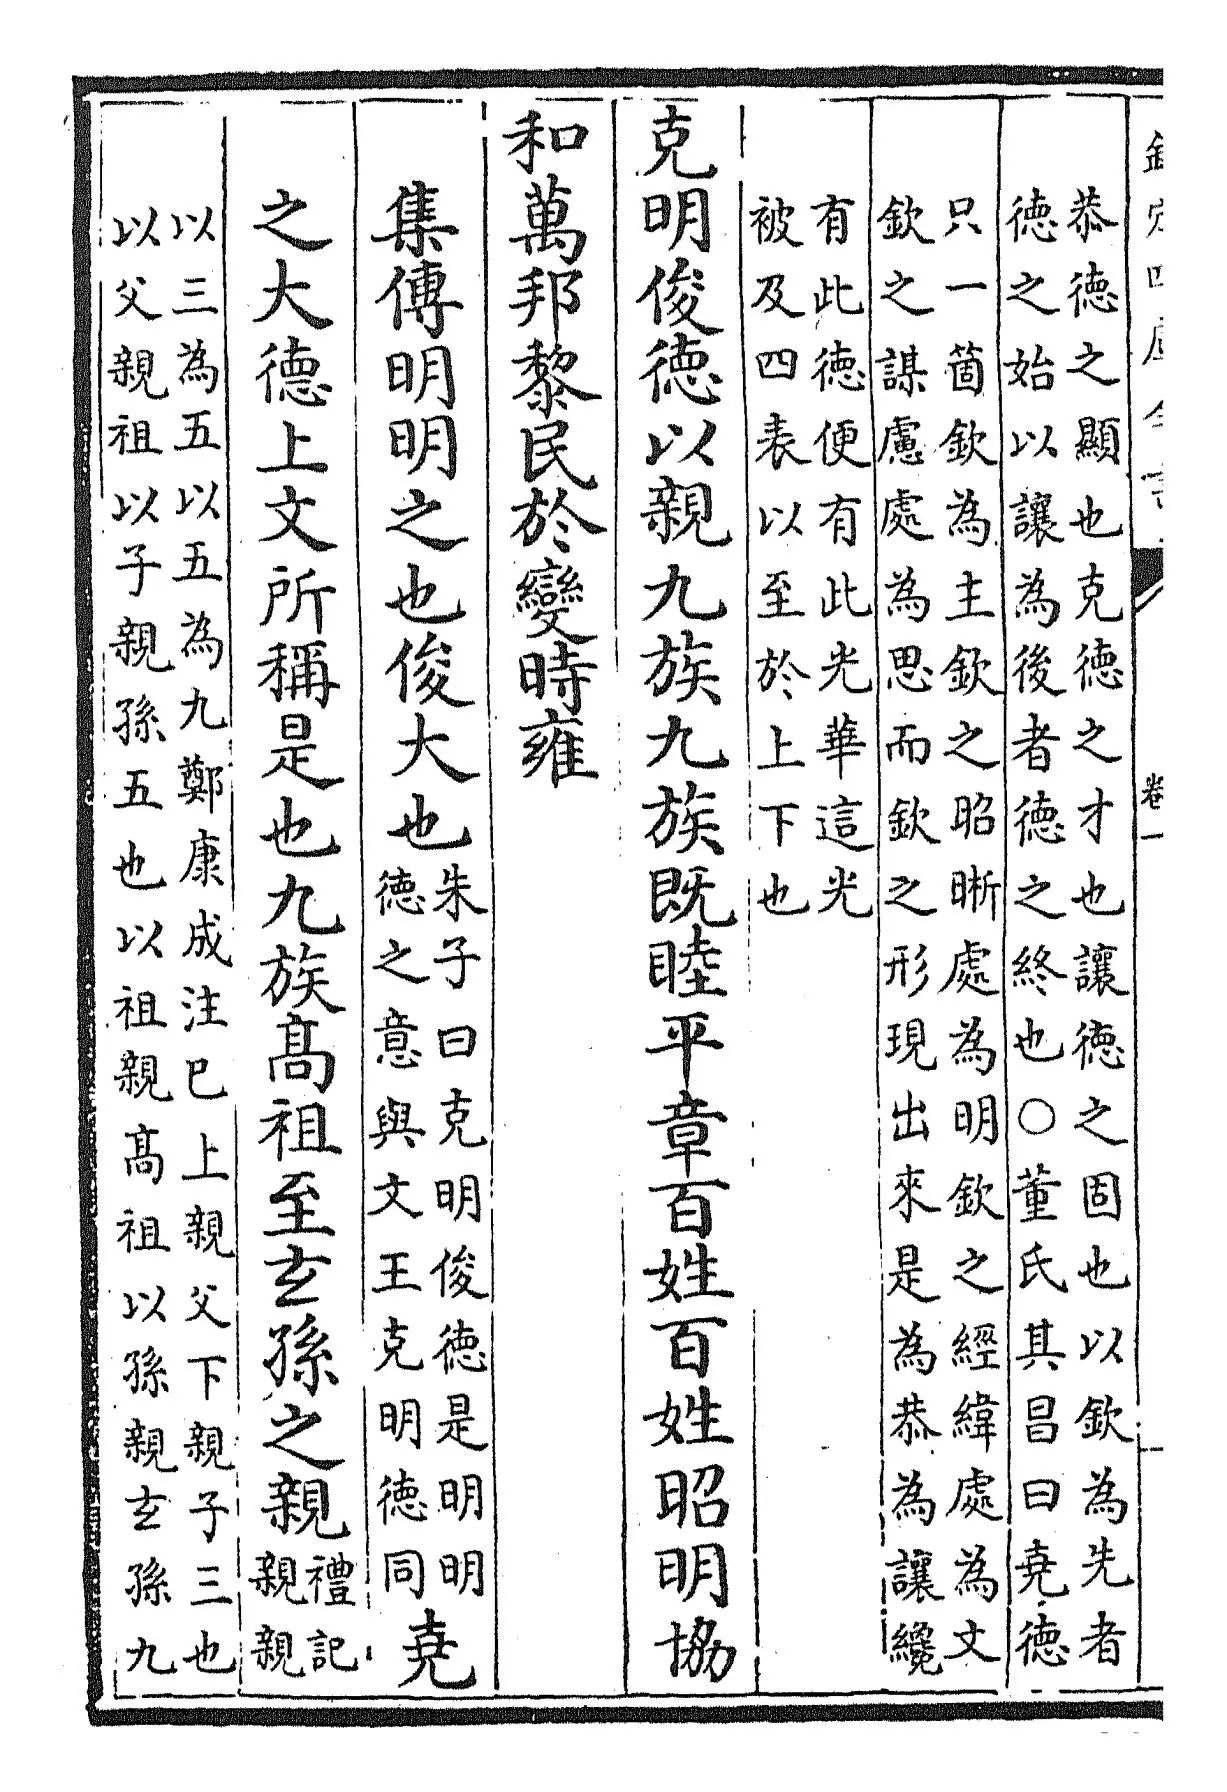 欽定四庫全書
卷一
恭徳之顯也克徳之才也讓徳之固也以欽為先者
徳之始以讓為後者徳之終也○董氏其昌曰堯徳
只一箇欽為主欽之昭晰處為明欽之經緯處為文
欽之謀慮處為思而欽之形現出來是為恭為讓纔
有此徳便有此光華這光
被及四表以至於上下也
克明俊徳以親九族九族既睦平章百姓百姓昭明協
和萬邦黎民於變時雍
集傳明明之也俊大也
朱子曰克明俊徳是明明
徳之意與文王克明徳同
堯
之大徳上文所稱是也九族髙祖至玄孫之親
禮記
親親
以三為五以五為九鄭康成注巳上親父下親子三也
以父親祖以子親孫五也以祖親髙祖以孫親玄孫九